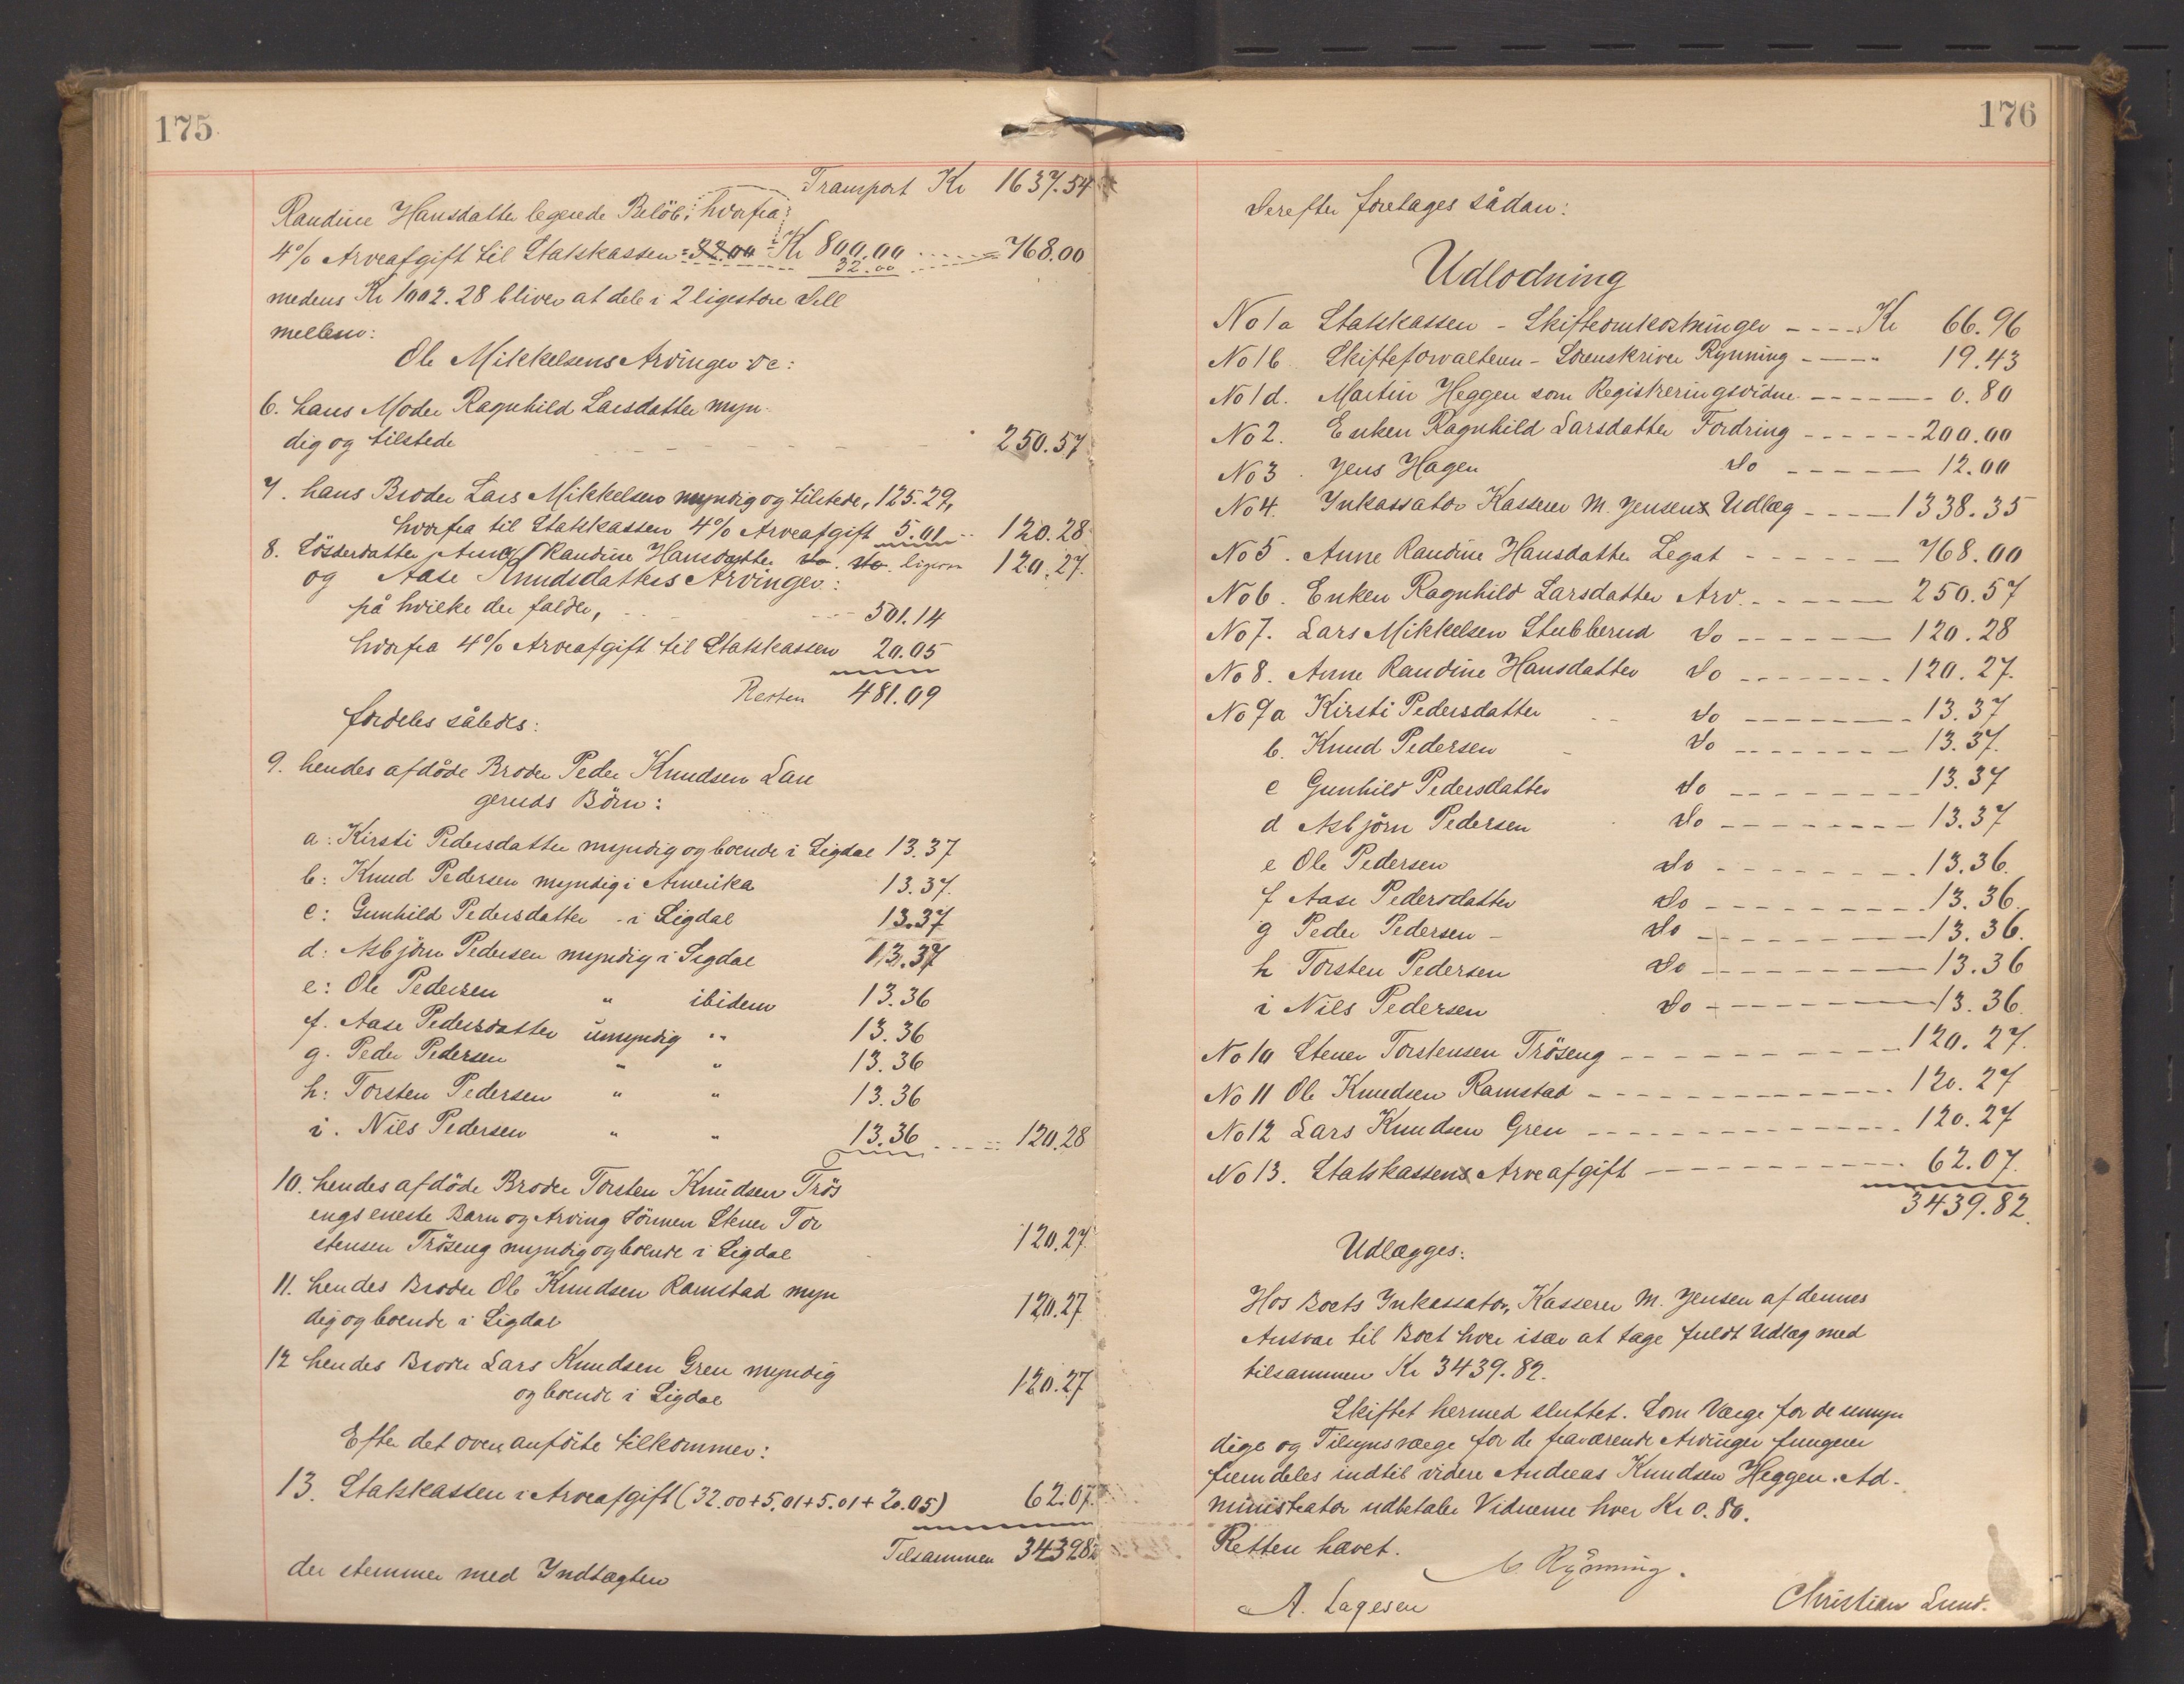 175
Transport Kr 1637.54
Randine Hansdatter legerede Beløb, hvorfra
4% Arveafgift til Statskassen 32.00 Kr 800.00 768.00
32.00
medens Kr 1002.28 bliver at dele i 2 ligestore Dele
mellem:
Ole Mikkelsens Arvinger
6. hans Moder Ragnhild Larsdatter myn
dig og tilstede 250.57
7. hans Broder Lars Mikkelsen myndig og tilstede, 125.29,
hvorfra til Statskassen 4% Arveafgift 5.01 120.28
8. Søsterdatter Anne Randine Hansdatter do. do. ligesom 120.27.
og Aase Knudsdatters Arvinger:
på hvilke der falder, 501.14
hvorfra 4% Arveafgift til Statskassen 20.05
Resten 481.09
fordeles således:
9. hendes afdøde Broder Peder Knudsen Lan
geruds Børn:
a: Kirsti Pedersdatter myndig og boende i Sigdal 13.37
b: Knud Pedersen myndig i Amerika 13.37.
c: Gunhild Pedersdatter - i Sigdal 13.37
d: Asbjørn Pedersen myndig i Sigdal 13.37
e: Ole Pedersen " ibidem 13.36
f. Aase Pedersdatter umyndig " 13.36
g. Peder Pedersen " " 13.36
h: Torsten Pedersen " " 13.36
i. Nils Pedersen " " 13.36 120.28
10. hendes afdøde Broder Torsten Knudsen Trøs
engs eneste Barn og Arving Sønnen Stener Tor
stensen Trøseng myndig og boende i Sigdal 120.27.
11. hendes Broder Ole Knudsen Ramstad myn
dig og boende i Sigdal 120.27
12 hendes Broder Lars Knudsen Gren myndig
og boende i Sigdal 120.27
Efter det ovenanførte tilkommer:
13. Statskassen i Arveafgift (32.00 + 5.01 + 5.01 + 20.05) 62.07.
Tilsammen 3439.82
der stemmer med Indtægten
176
Derefter foretages sådan:
Udlodning
No 1a Statskassen - Skifteomkostninger Kr 66.96
No 1b. Skifteforvalteren - Sorenskriver Rynning 19.43
No 1d. Martin Heggen som Registreringsvidne 0.80
No 2. Enken Ragnhild Larsdatter Fordring 200.00
No 3. Jens Hagen Do 12.00
No 4. Inkassator Kasserer M. Jensens Udlæg 1338.35
No 5. Anne Randine Hansdatter Legat 768.00
No 6. Enken Ragnhild Larsdatter Arv. 250.57
No 7. Lars Mikkelsen Stubberud Do 120.28
No 8. Anne Randine Hansdatter Do 120.27.
No 9a Kirsti Pedersdatter Do 13.37
b. Knud Pedersen Do 13.37.
c Gunhild Pedersdatter Do 13.37
d Asbjørn Pedersen Do 13.37
e Ole Pedersen Do 13.36.
f Aase Pedersdatter Do 13.36.
g Peder Pedersen Do 13.36.
h Torsten Pedersen Do 13.36
i Nils Pedersen Do 13.36.
No 10 Stener Torstensen Trøseng 120.27.
No 11 Ole Knudsen Ramstad 120.27
No 12 Lars Knudsen Gren 120.27
No 13. Statskassens Arveafgift 62.07.
3439.82.
Udlægges:
Hos Boets Inkassator, Kasserer M. Jensen af dennes
Ansvar til Boet hver især at tage fuldt Udlæg med
tilsammen Kr 3439.82.
Skiftet hermed sluttet. Som Værge for de umyn
dige og Tilsynsværge for de fraværende Arvinger fungerer
fremdeles indtil videre Andreas Knudsen Heggen. Ad-
ministrator udbetaler Vidnerne hver Kr 0.80.
Retten hævet.
Rynning.
A. Lagesen
Christian Lund.